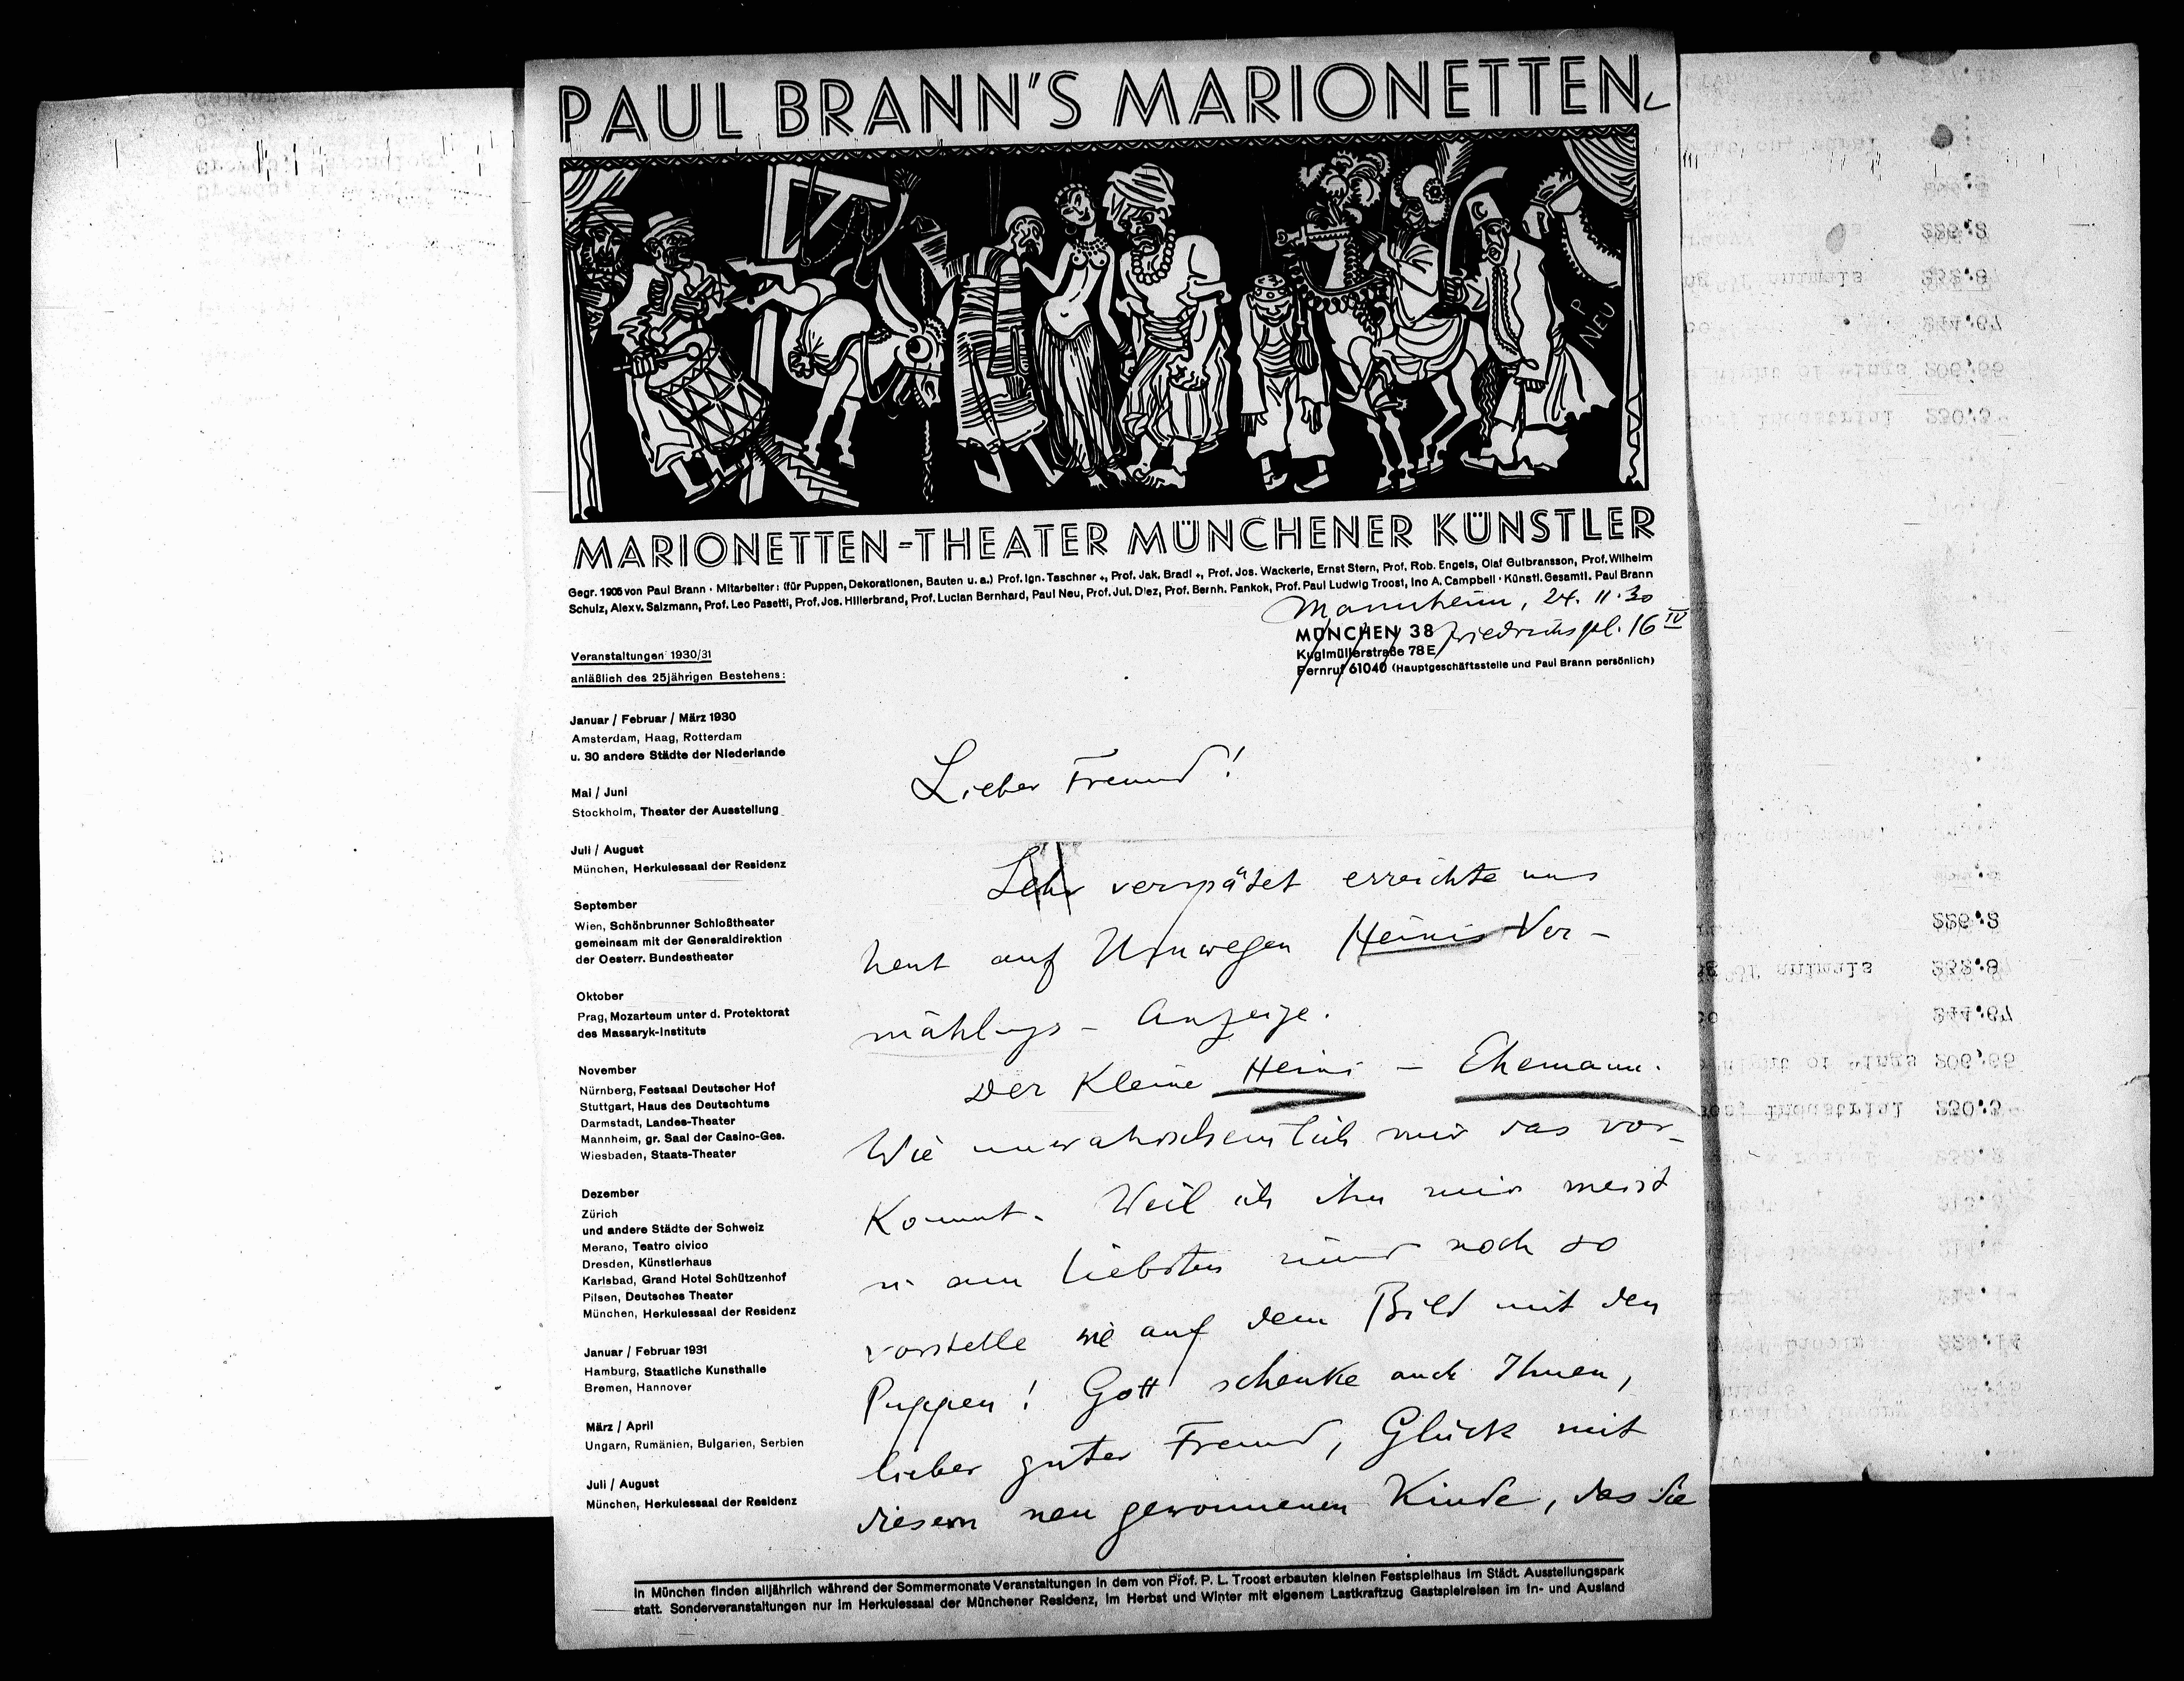 PAUL BRANN'S MARIONETTEN
P
NEU
MARIONETTEN-THEATER MÜNCHENER KÜNSTLER
Gegr. 1905 von Paul Brann · Mitarbeiter: (für Puppen, Dekorationen, Bauten u. a.) Prof. Ign. Taschner +, Prof. Jak. Bradl +, Prof. Jos. Wackerle, Ernst Stern, Prof. Rob. Engels, Olaf Gulbransson, Prof. Wilhelm
Schulz, Alex v. Salzmann, Prof. Leo Pasetti, Prof. Jos. Hillerbrand, Prof. Lucian Bernhard, Paul Neu, Prof. Jul. Diez, Prof. Bernh. Pankok, Prof. Paul Ludwig Troost, Ino A. Campbell · Künstl. Gesamtl. Paul Brann
Mannheim, 24. 11. 30
MÜNCHEN 38 Friedrichspl. 16 IV
Kuglmüllerstraße 78 E
Fernruf 61040 (Hauptgeschäftsstelle und Paul Brann persönlich)
Veranstaltungen 1930/31
anläßlich des 25jährigen Bestehens:
Januar / Februar / März 1930
Amsterdam, Haag, Rotterdam
u. 30 andere Städte der Niederlande
Mai / Juni
Stockholm, Theater der Ausstellung
Juli / August
München, Herkulessaal der Residenz
September
Wien, Schönbrunner Schloßtheater
gemeinsam mit der Generaldirektion
der Oesterr. Bundestheater
Oktober
Prag, Mozarteum unter d. Protektorat
des Massaryk-Instituts
November
Nürnberg, Festsaal Deutscher Hof
Stuttgart, Haus des Deutschtums
Darmstadt, Landes-Theater
Mannheim, gr. Saal der Casino-Ges.
Wiesbaden, Staats-Theater
Dezember
Zürich
und andere Städte der Schweiz
Merano, Teatro civico
Dresden, Künstlerhaus
Karlsbad, Grand Hotel Schützenhof
Pilsen, Deutsches Theater
München, Herkulessaal der Residenz
Januar / Februar 1931
Hamburg, Staatliche Kunsthalle
Bremen, Hannover
März / April
Ungarn, Rumänien, Bulgarien, Serbien
Juli / August
München, Herkulessaal der Residenz
Lieber Freund!
Sehr verspätet erreichte uns
heut auf Umwegen Heinis Ver-
mählungs- Anzeige.
Der kleine Heini - Ehemann.
Wie unwahrscheinlich mir das vor-
kommt. Weil ich ihn mir meist
u. am liebsten immer noch so
vorstelle wie auf dem Bild mit den
Puppen! Gott schenke auch Ihnen,
lieber guter Freund, Glück mit
diesem neu gewonnenen Kinde, das Sie
In München finden alljährlich während der Sommermonate Veranstaltungen in dem von Prof. P. L. Troost erbauten kleinen Festspielhaus im Städt. Ausstellungspark
statt. Sonderveranstaltungen nur im Herkulessaal der Münchener Residenz, im Herbst und Winter mit eigenem Lastkraftzug Gastspielreisen im In- und Ausland